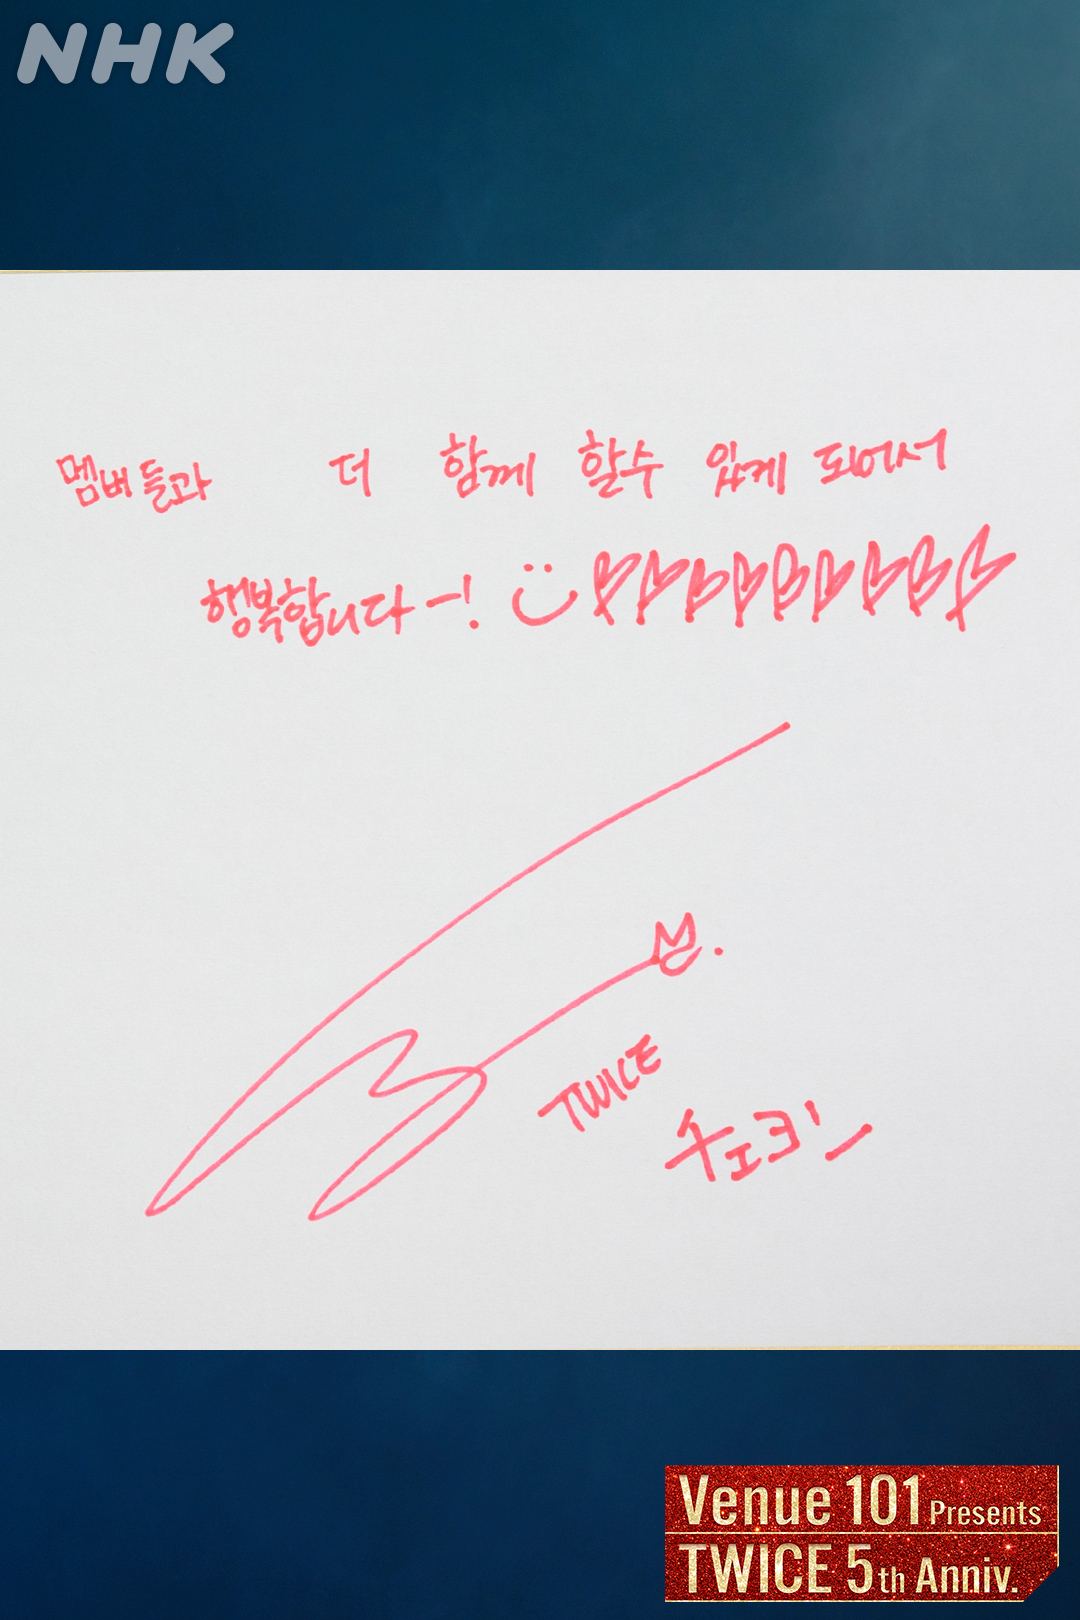 NHK
멤버들과 더 함께 할수 있게 되어서
행복합니다-!
TWICE
チェヨン
Venue 101 Presents
TWICE 5th Anniv.